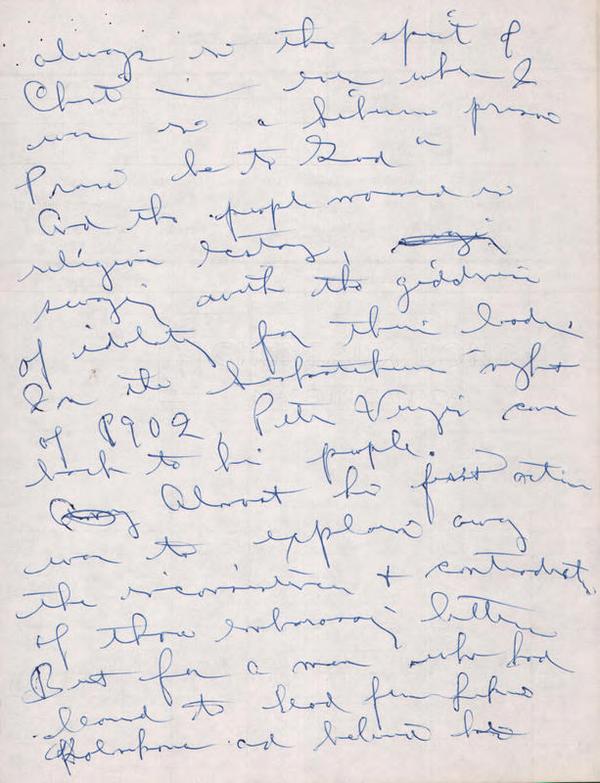 always in the spirit of
Christ — even when I
was in a Siberian prison
Praise be to God"
And the people moaned in
religious ecstasy,
swaying with the giddiness
of idolatry for their leader.
In the Saskatchewan night
of 1902, Peter Verigin came
back to his people.
Almost his first action
was to explain away
the inconsistencies + contradicts.
of those embarrassing letters
But for a man who had
learned to lead from
and behind